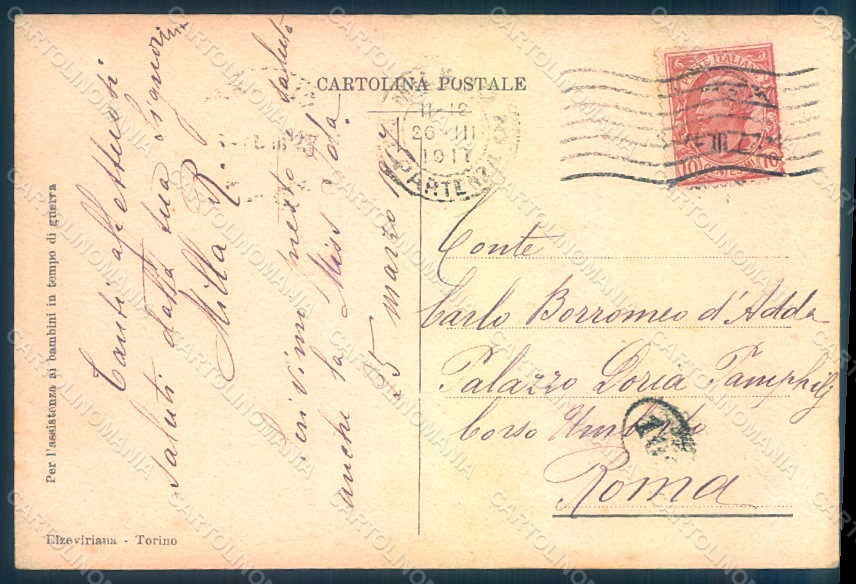 CARTOLINA POSTALE
Per l'assistenza ai bambini in tempo di guerra
Elzeviriana - Torino
Tanti affettuosi
saluti dalla sua Signorina
Milla R.
nesto
saluta
anche la Miss Ida.
25 marzo 1917
11-12
26 III
1917
PARTENZA
POSTE ITALIANE
10
10
Conte
Carlo Borromeo d'Adda
Palazzo Doria Pamphilj
Corso Umberto
Roma
CARTOLINOMANIA